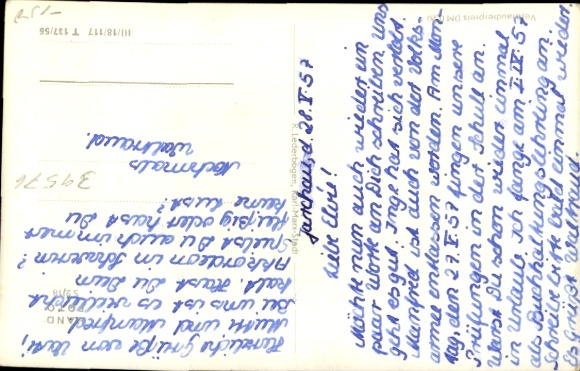 Jarchau, d. 28.V.57
Liebe Elvi!
Möchte nun auch wieder ein
paar Worte an Dich schreiben. Uns
geht es gut. Inge hat sich verlobt.
Manfred ist auch von der Volks-
armee entlassen worden. Am Mon-
tag den 27.V.57 fingen unsere
Prüfungen in der Schule an.
Warst Du schon wieder einmal
in Urlaub. Ich fange am 1.IX.57
als Buchhaltungslehrling an.
Schreibe bitte bald einmal wieder.
Es grüßt Waltraud.
Herzliche Grüße von Vati,
Mutti und Manfred.
Bei uns ist es vielleicht
kalt. Hast Du Dein
Akkordeon in Schwerin?
Spielst Du auch immer
fleißig oder hast Du
keine Lust?
Nochmals
Waltraud.
39576
III/18/117 T 137/56
Verbraucherpreis DM 0,20
R. Lederbogen, Karl-Marx-Stadt